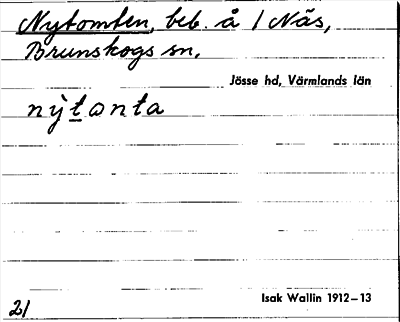 Nytomten, beb. å 1 Näs,
Brunskogs sn.
Jösse hd, Värmlands län
nỳt̲ònta
Isak Wallin 1912–13
21